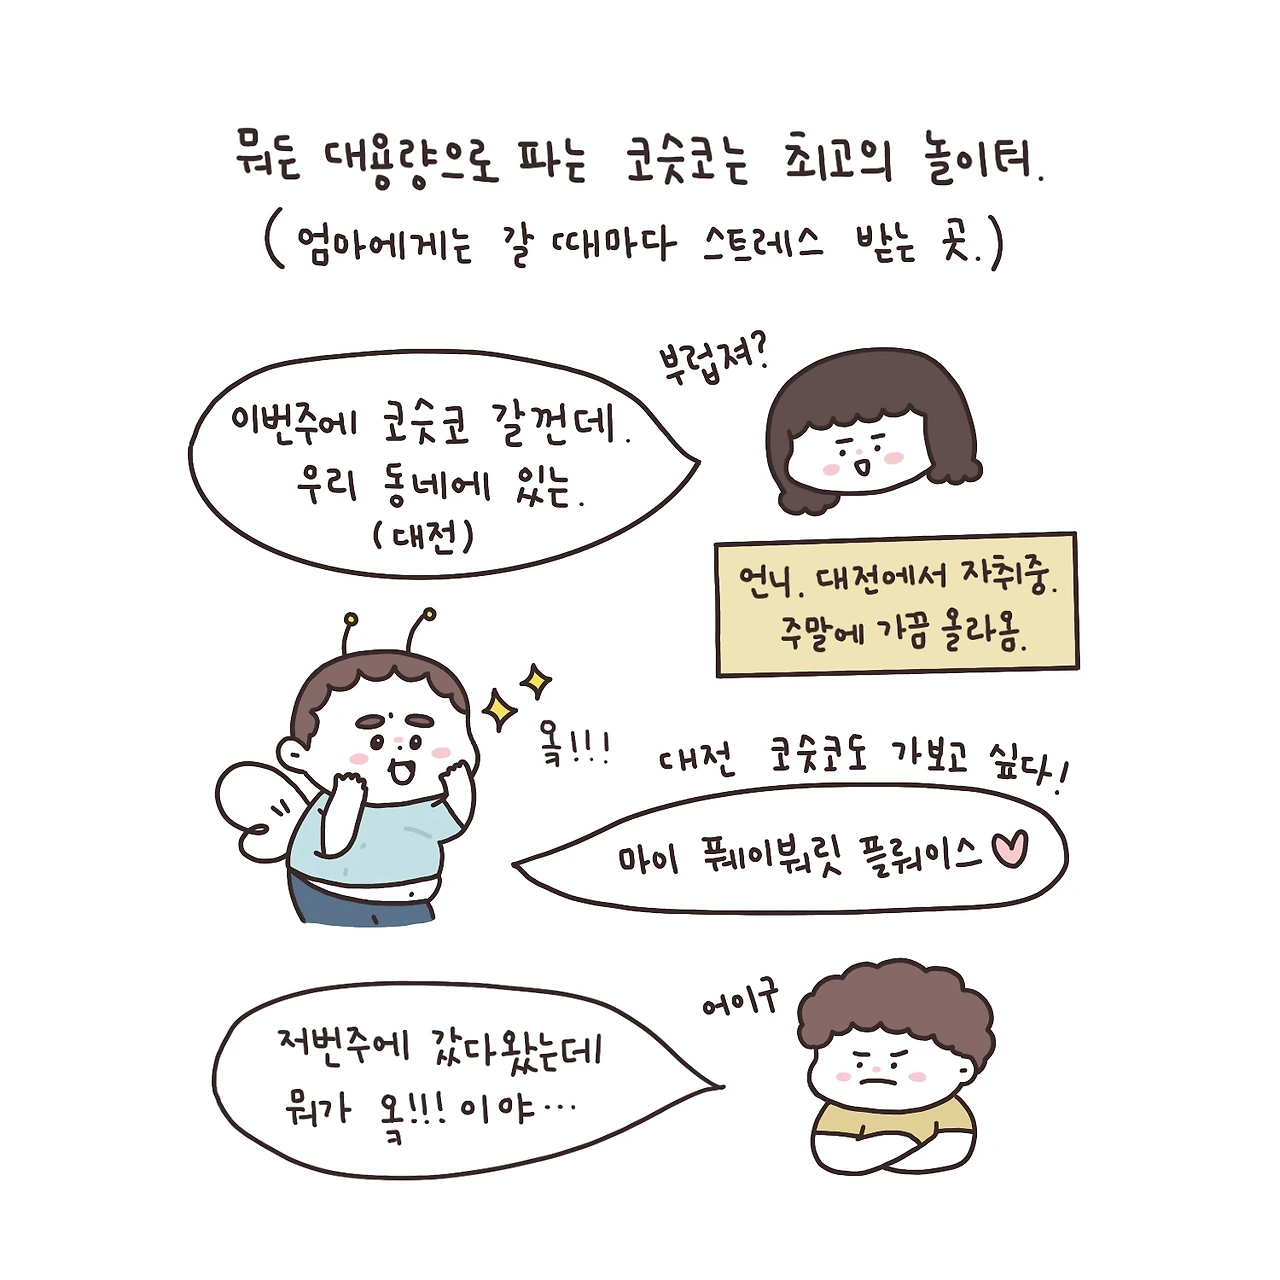 뭐든 대용량으로 파는 코슷코는 최고의 놀이터.
(엄마에게는 갈 때마다 스트레스 받는 곳.)
부럽져?
이번주에 코슷코 갈껀데.
우리 동네에 있는.
(대전)
언니. 대전에서 자취중.
주말에 가끔 올라옴.
옼!!!
대전 코슷코도 가보고 싶다!
마이 풰이붜릿 플뤠이스
어이구
저번주에 갔다왔는데
뭐가 옼!!! 이야...